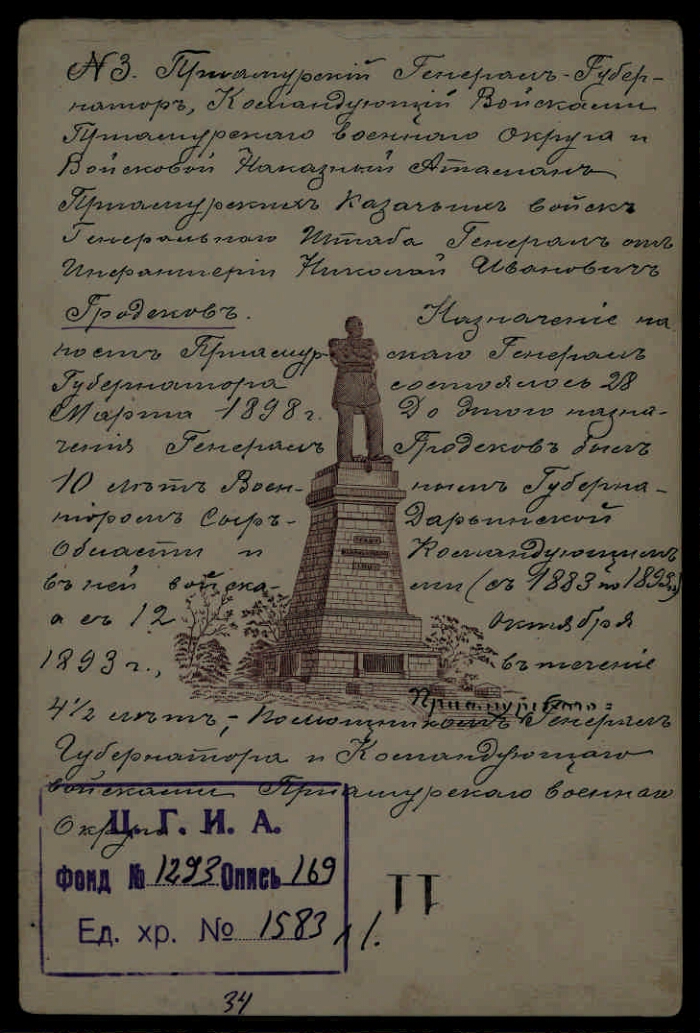 №3. Приамурскій Генералъ-Губер-
наторъ, Командующій Войсками
Приамурскаго военнаго округа и
Войсковой Наказный Атаманъ
Приамурскихъ казачьихъ войскъ
Генеральнаго Штаба Генералъ отъ
Инфантеріи Николай Ивановичъ
Гродековъ. Назначеніе на
постъ Приамурскаго Генералъ
Губернатора состоялось 28
Марта 1898 г. До этого назна-
ченія Генералъ Гродековъ былъ
10 лѣтъ Воен- нымъ Губерна-
торомъ Сыръ- Дарьинской
Области и Командующимъ
въ ней войска- ми (съ 1883 по 1893 г.)
а съ 12 октября
1893 г., въ теченіе
4½ лѣтъ, Помощникомъ Генералъ
Губернатора и Командующаго
войсками Приамурскаго военнаго
Округа
Ц. Г. И. А.
Фонд № 1293 Опись 169
Ед. хр. № 1583 л 1.
11
34